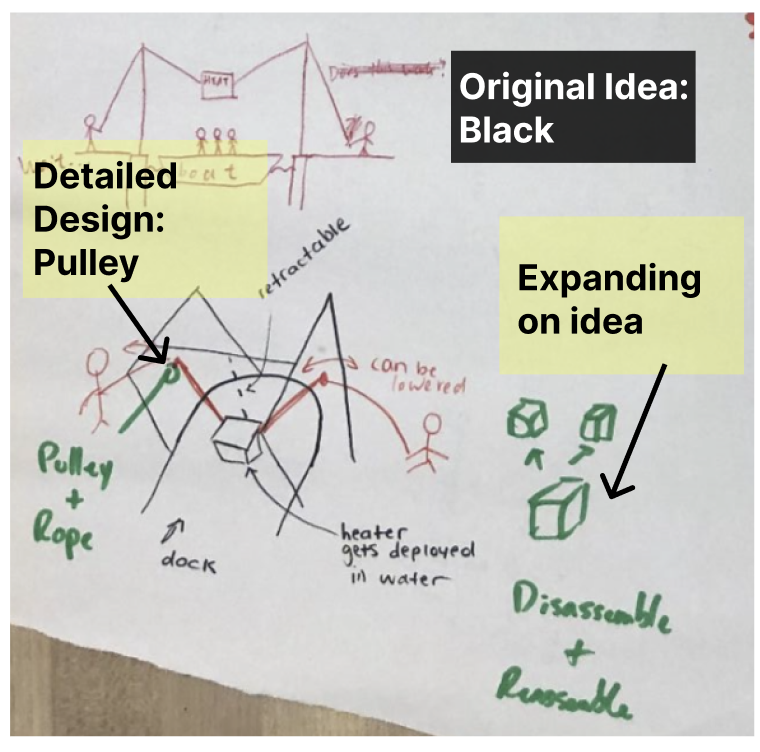 HEAT
Does this work?
Original Idea:
Black
wait...
boat
Detailed
Design:
Pulley
retractable
Expanding
on idea
can be
lowered
Pulley
+
Rope
dock
heater
gets deployed
in water
Disassemble
+
Reassemble